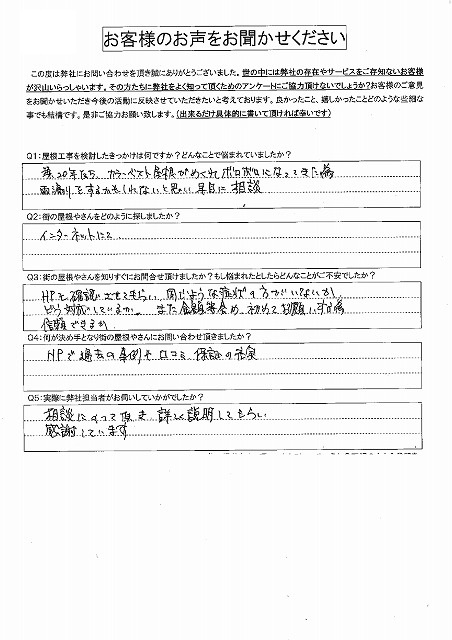 お客様のお声をお聞かせください
この度は弊社にお問い合わせを頂き誠にありがとうございました。世の中には弊社の存在やサービスをご存知ないお客様
が沢山いらっしゃいます。その方たちに弊社をよく知って頂くためのアンケートにご協力頂けないでしょうか?お客様のご意見
をお聞かせいただき今後の活動に反映させていただきたいと考えております。良かったこと、嬉しかったことどのような些細な
事でも結構です。是非ご協力お願い致します。(出来るだけ具体的に書いて頂ければ幸いです)
Q1:屋根工事を検討したきっかけは何ですか?どんなことで悩まれていましたか?
築20年たち カラーベスト屋根がめくれボロボロになってきた為
雨漏りをするかもしれないと思い早目に相談
Q2:街の屋根やさんをどのように探しましたか?
インターネットにて
Q3:街の屋根やさんを知りすぐにお問合せ頂けましたか?もし悩まれたとしたらどんなことがご不安でしたか?
HPを確認させてもらい 同じような症状の方がいないか
どう対応しているか。 また金額等含め 初めてお願いする為
信頼できるか
Q4:何が決め手となり街の屋根やさんにお問い合わせ頂きましたか?
HPで過去の事例や口コミ、保証の充実
Q5:実際に弊社担当者がお伺いしていかがでしたか?
相談にのって頂き、詳しく説明してもらい
感謝しています